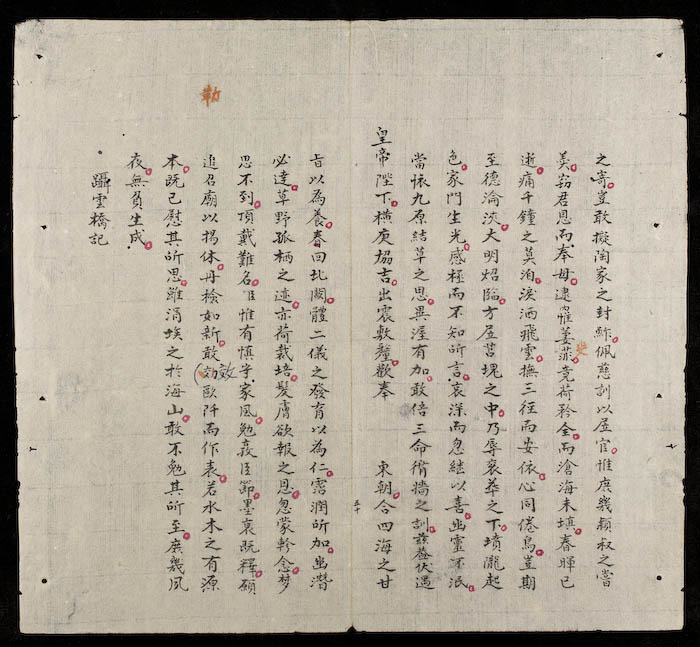 之寄豈敢擬陶家之封鮓佩慈訓以居官惟庶幾頴叔之嘗
羮窃君恩而奉母逮罹萋斐竟荷矜全而滄海未填春暉已
逝痛千鐘之莫洎淚洒飛雲撫三径而安依心同倦鳥豈期
至德淪浹大明炤臨方居苫塊之中乃辱褒葬之下墳隴起
色家門生光感極而不知所言哀深而忽継以喜幽靈不泯
當懐九原結草之思異渥有加敢倍三命循墙之訓玆葢伏遇
皇帝陛下横庚協吉出震敷釐歡奉 東朝合四海之甘
五十
旨以為養春回北闕體二儀之發育以為仁霑潤所加幽潛
必逹草野孤栖之迹亦荷栽培髮膚欲報之恩忽蒙軫念梦
思不到頂戴難名臣惟有慎守家風勉殫臣節墨衰既釋願
追召廟以揚休丹檢如新敢効(效)歐阡而作表若水木之有源
本既已慰其所思雖涓埃之於海山敢不勉其所至庶幾夙
夜無負生成
躡雲橋記
勒